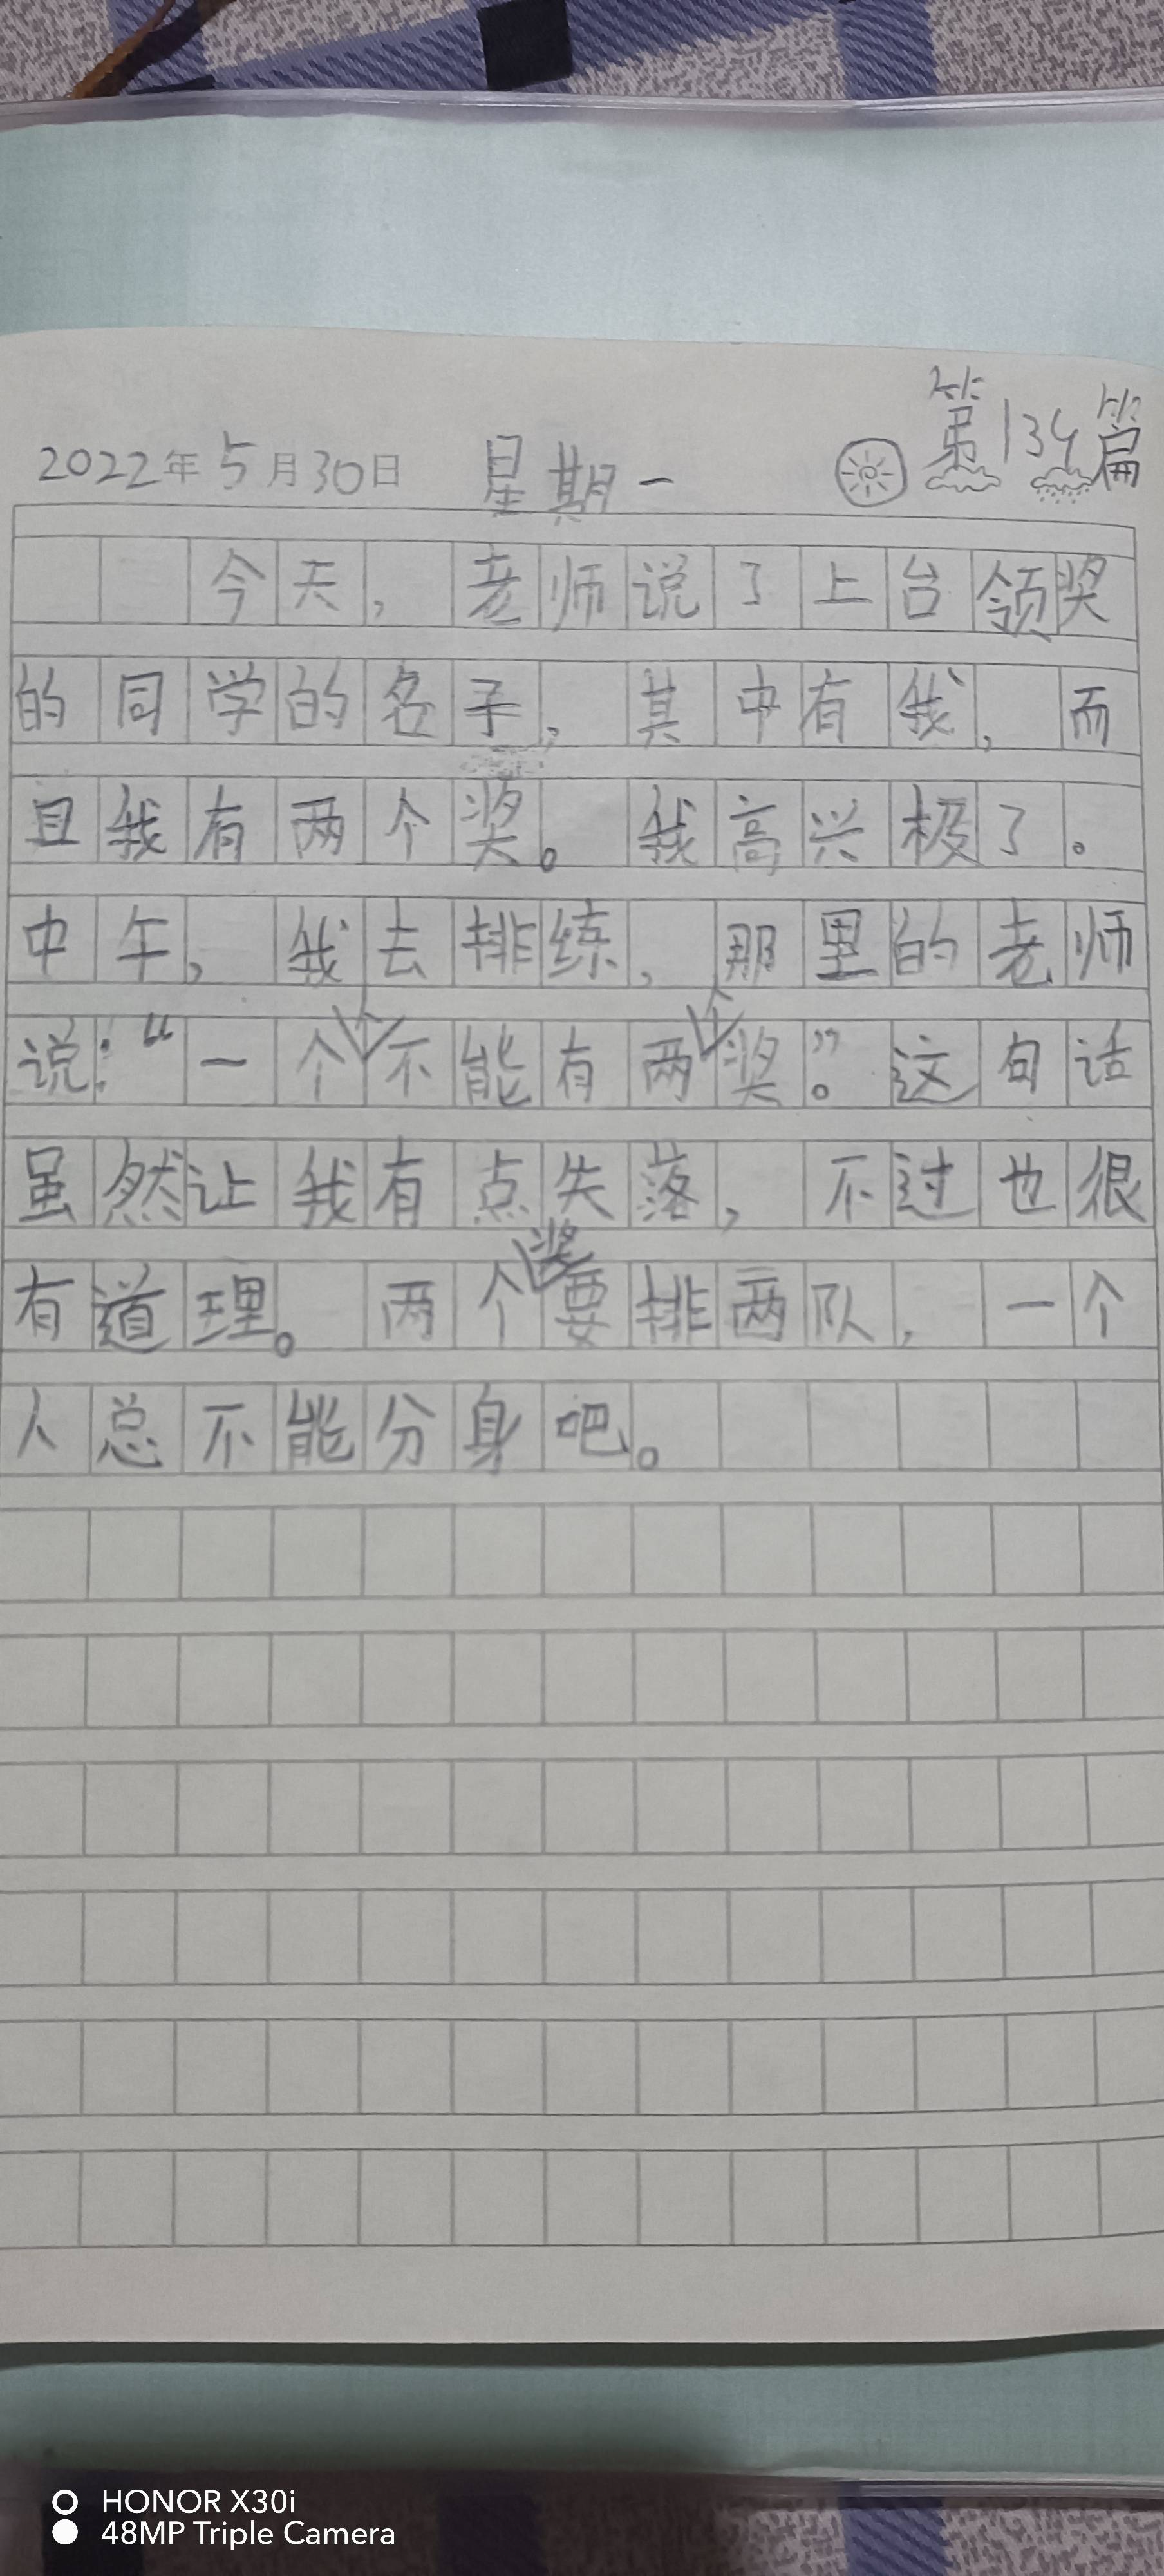 2022年5月30日 星期一 第134篇
今天，老师说了上台领奖
的同学的名字，其中有我，而
且我有两个奖。我高兴极了。
中午，我去排练，那里的老师
说：“一个人不能有两个奖。”这句话
虽然让我有点失落，不过也很
有道理。两个奖要排两队，一个
人总不能分身吧。
HONOR X30i
48MP Triple Camera